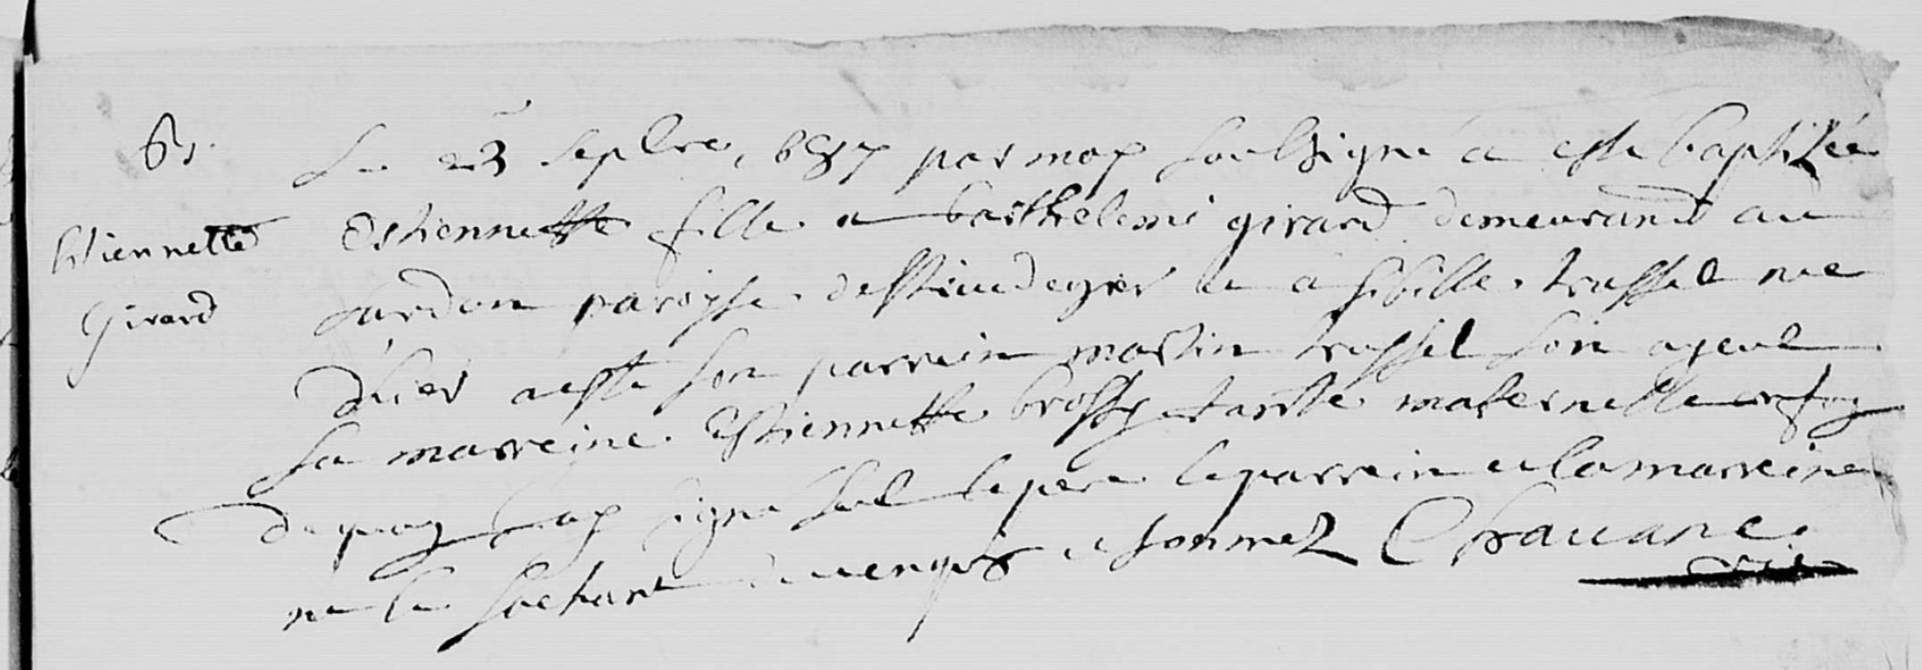 61.
Estiennette
Girard
Le 23 septbre, 1687 par moy soubsigné a este baptizée
Estiennette fille a barthelemi girard demeurand au
Sardon paroysse de et a sibille trussel nee
d'hier a esté son parrein martin trussel son ayeul
Sa marreine Estiennette brossy tante maternelle en foy
de quoy j'ay signé seul le pere le parrein et la marreine
ne le sachant enquis et sommez Chavane
vic